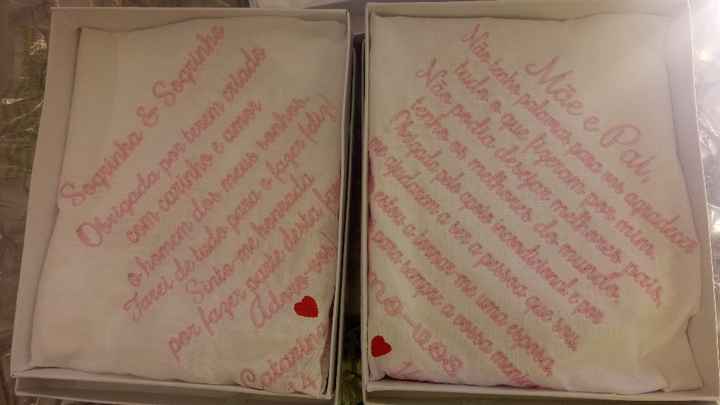 Sogrinha & Sogrinho
Obrigada por terem criado
com carinho e amor
o homem dos meus sonhos.
Farei de tudo para o fazer feliz!
Sinto-me honrada
por fazer parte desta
Adoro-vos!
Catarina
Mãe e Pai,
Não tenho palavras para vos agradecer
tudo o que fizeram por mim.
Não podia desejar melhores pais,
tenho os melhores do mundo.
Obrigada pelo apoio incondicional e por
me ajudarem a ser a pessoa que sou.
a tornar-me uma esposa,
sempre a vossa